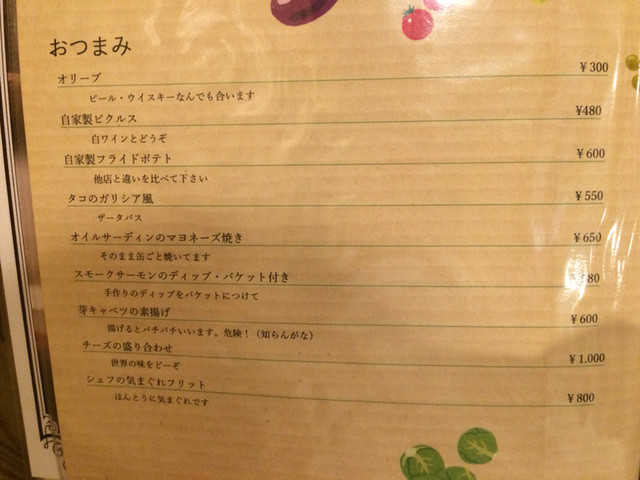 おつまみ
オリーブ ¥300
ビール・ウイスキーなんでも合います
自家製ピクルス ¥480
白ワインとどうぞ
自家製フライドポテト ¥600
他店と違いを比べて下さい
タコのガリシア風 ¥550
ザ－タパス
オイルサーディンのマヨネーズ焼き ¥650
そのまま缶ごと焼いてます
スモークサーモンのディップ・バケット付き
手作りのディップをバケットにつけて
芽キャベツの素揚げ ¥600
揚げるとパチパチいいます。危険！（知らんがな）
チーズの盛り合わせ ¥1.000
世界の味をどーぞ
シェフの気まぐれフリット ¥800
ほんとうに気まぐれです